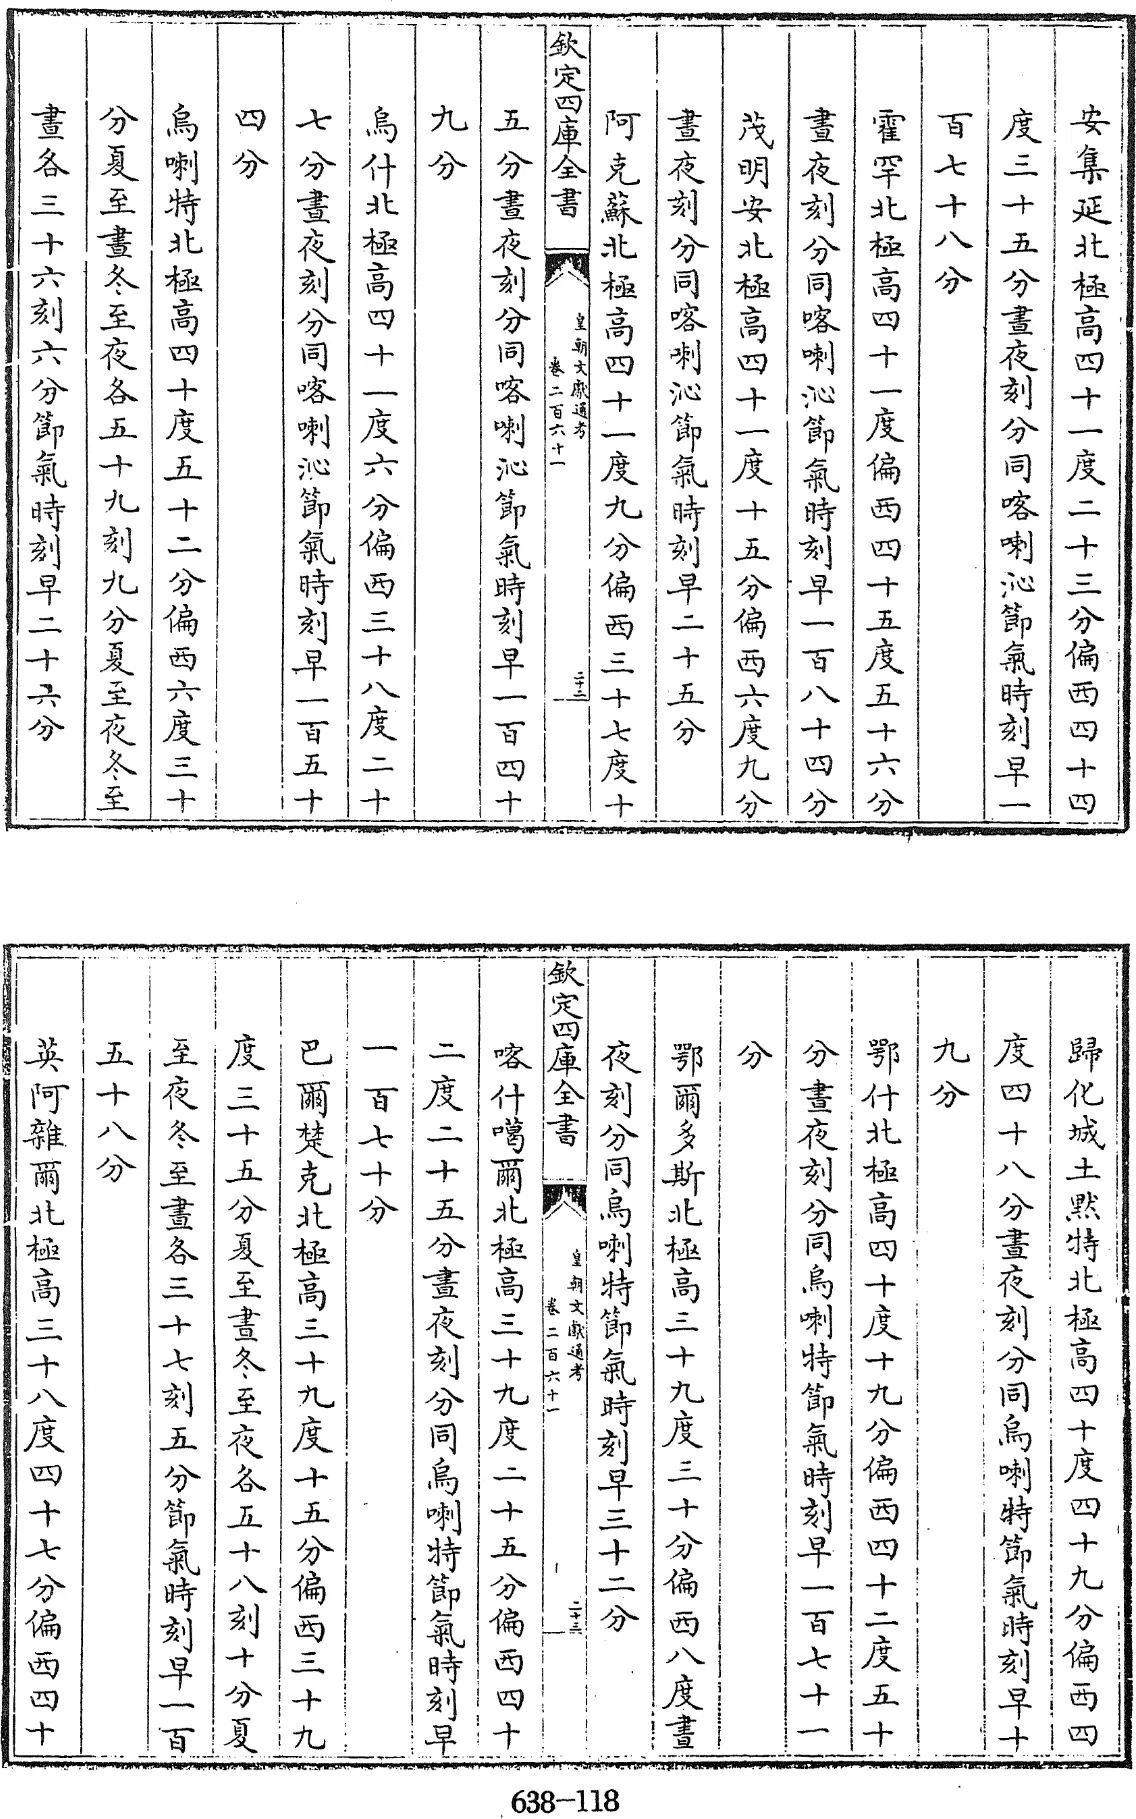 安集延北極高四十一度二十三分偏西四十四
度三十五分晝夜刻分同喀喇沁節氣時刻早一
百七十八分
霍罕北極高四十一度偏西四十五度五十六分
晝夜刻分同喀喇沁節氣時刻早一百八十四分
茂明安北極高四十一度十五分偏西六度九分
晝夜刻分同喀喇沁節氣時刻早二十五分
阿克蘇北極高四十一度九分偏西三十七度十
欽定四庫全書
皇朝文獻通考
卷二百六十一
二十二
五分晝夜刻分同喀喇沁節氣時刻早一百四十
九分
烏什北極高四十一度六分偏西三十八度二十
七分晝夜刻分同喀喇沁節氣時刻早一百五十
四分
烏喇特北極高四十度五十二分偏西六度三十
分夏至晝冬至夜各五十九刻九分夏至夜冬至
晝各三十六刻六分節氣時刻早二十六分
歸化城土黙特北極高四十度四十九分偏西四
度四十八分晝夜刻分同烏喇特節氣時刻早十
九分
鄂什北極高四十度十九分偏西四十二度五十
分晝夜刻分同烏喇特節氣時刻早一百七十一
分
鄂爾多斯北極高三十九度三十分偏西八度晝
夜刻分同烏喇特節氣時刻早三十二分
欽定四庫全書
皇朝文獻通考
卷二百六十一
二十三
喀什噶爾北極高三十九度二十五分偏西四十
二度二十五分晝夜刻分同烏喇特節氣時刻早
一百七十分
巴爾楚克北極高三十九度十五分偏西三十九
度三十五分夏至晝冬至夜各五十八刻十分夏
至夜冬至晝各三十七刻五分節氣時刻早一百
五十八分
英阿雜爾北極高三十八度四十七分偏西四十
638-118